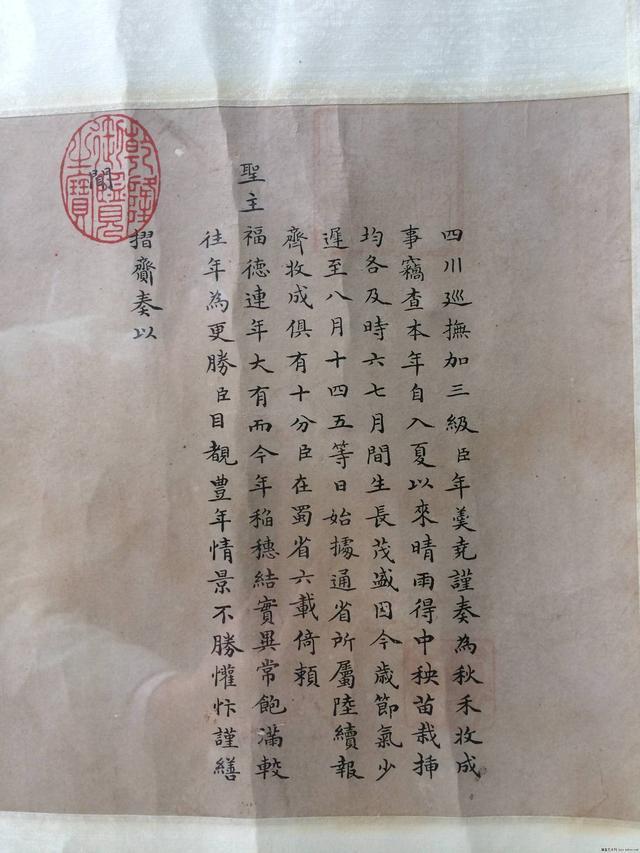 四川廵撫加三級臣年羹堯謹奏為秋禾收成
事竊查本年自入夏以來晴雨得中秧苗栽揷
均各及時六七月間生長茂盛因今歲節氣少
遲至八月十四五等日始據通省所屬陸續報
齊收成俱有十分臣在蜀省六載倚頼
聖主
福德連年大有而今年稻穗結實異常飽滿較
往年為更勝臣目覩豊年情景不勝懽忭謹繕
摺齎奏以
聞
乾隆御覽之寶